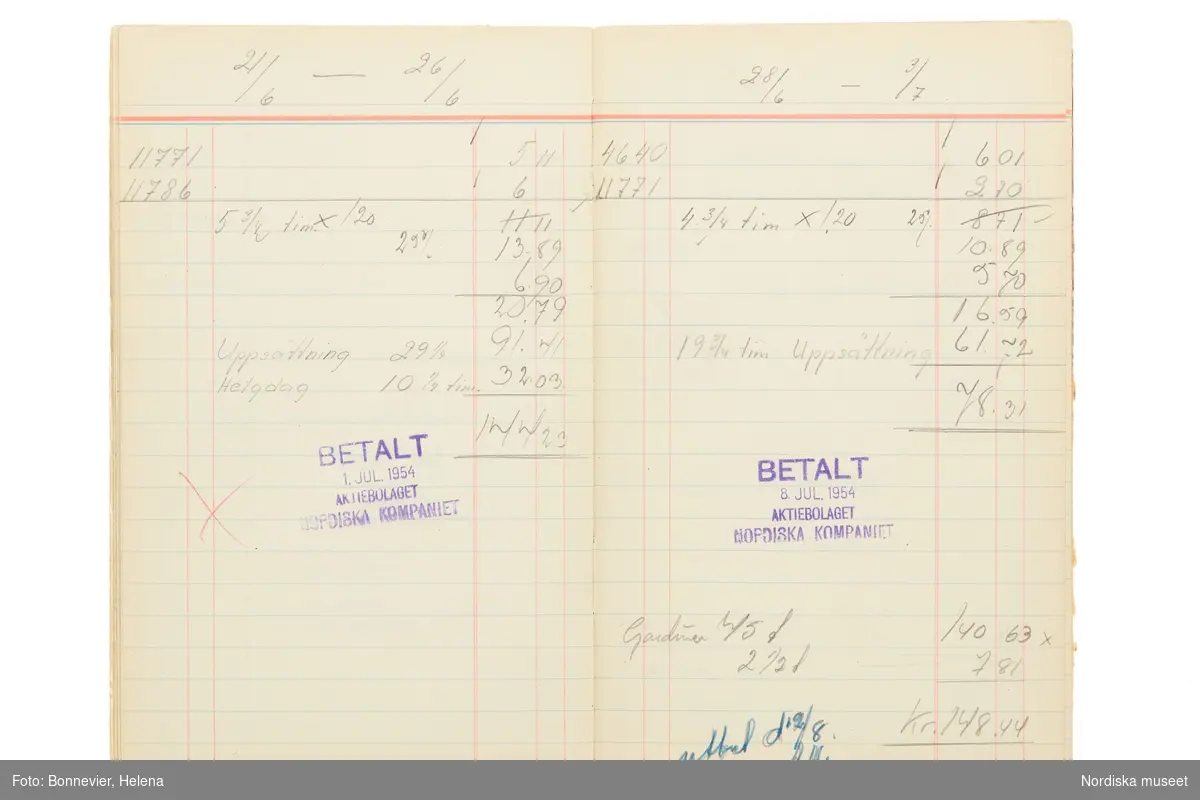 21/6 — 26/6
11771 5 11
11786 6
5 3/4 tim. x 1.20 11 11
25% 13.89
6.90
20.79
Uppsättning 29 1/4 91.41
Helgdag 10 1/4 tim. 32.03
144 23
BETALT
1. JUL. 1954
AKTIEBOLAGET
NORDISKA KOMPANIET
28/6 — 3/7
4640 6 01
11771 2 70
4 3/4 tim x 1.20 25% 8 71
10.89
5 70
16.59
19 3/4 tim Uppsättning 61.72
78.31
BETALT
8. JUL. 1954
AKTIEBOLAGET
NORDISKA KOMPANIET
140 63 x
7 81
Kr. 148.44
utbet d 12/8.
Foto: Bonnevier, Helena
Nordiska museet